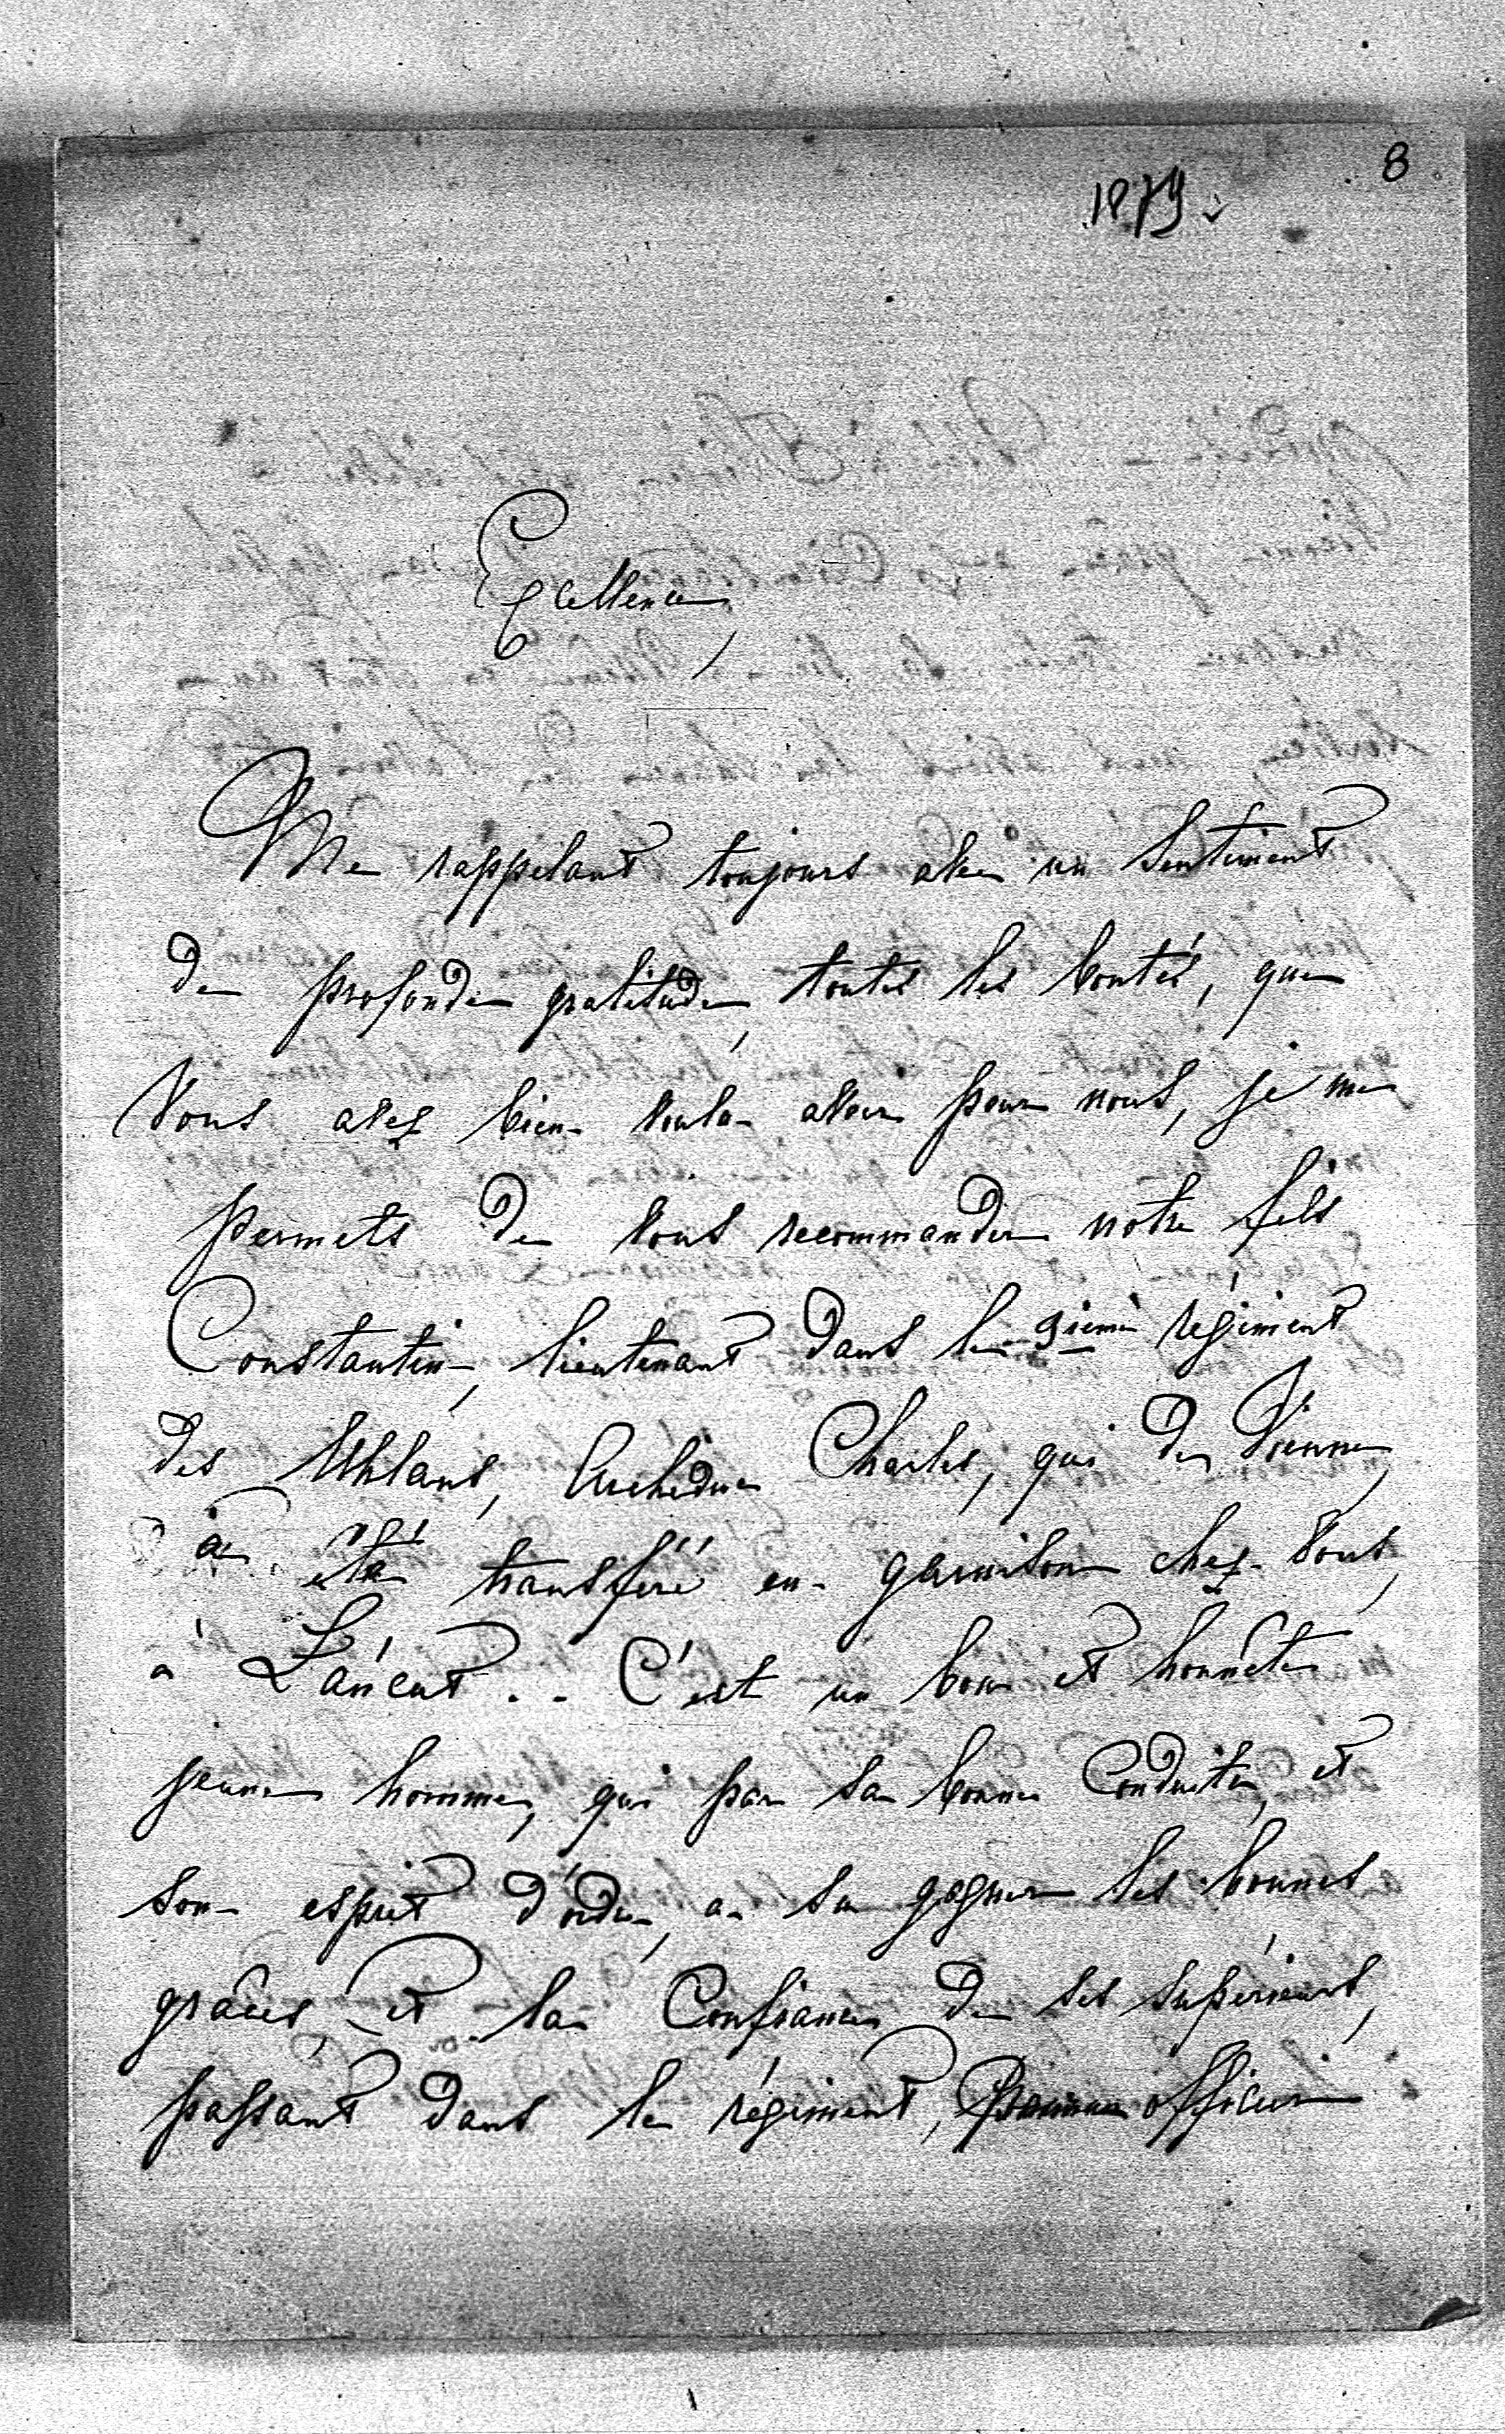 8
1879
Excellence,
Me rappelant toujours avec un sentiment
de profonde gratitude, toutes les bontés, que
Vous avez bien voulu avoir pour nous, je me
permets de Vous recommander notre fils
Constantin, lieutenant dans le 3ième régiment
des Uhlans, Archiduc Charles, qui de Vienne,
a été transféré en garnison chez Vous,
à Łańcut.. C'est un bon et honnête
jeune homme, qui par sa bonne Conduite, et
son esprit d'ordre, a su gagner les bonnes
grâces, et la Confiance de ses supérieurs,
passant dans le régiment, officier